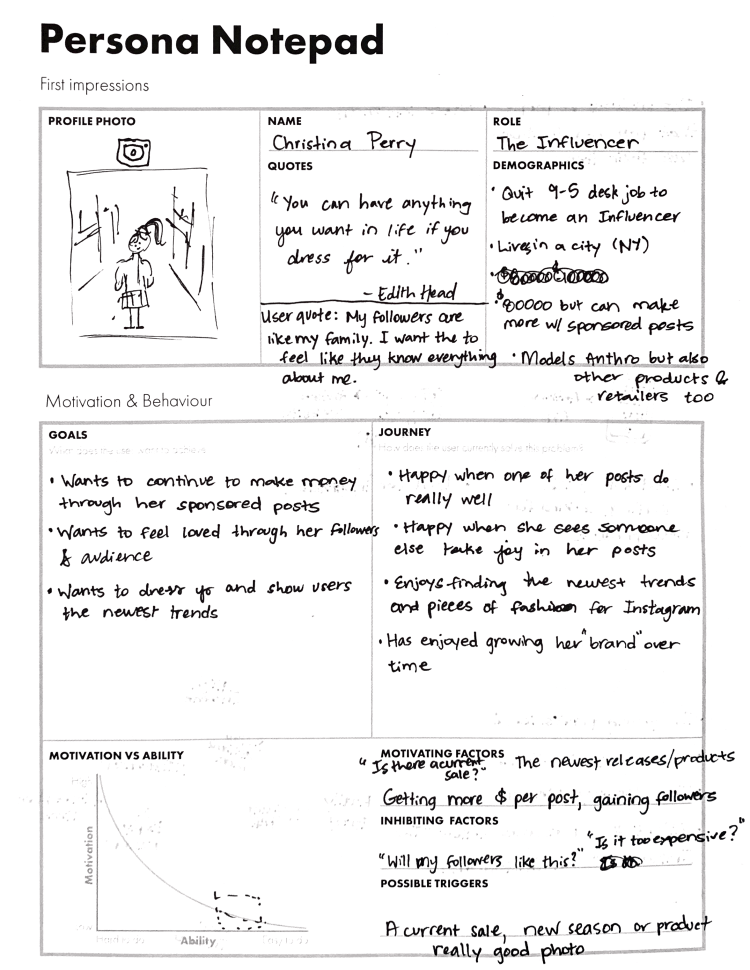 Persona Notepad
First impressions
PROFILE PHOTO
NAME
Christina Perry
QUOTES
"You can have anything
you want in life if you
dress for it."
- Edith Head
User quote: My followers are
like my family. I want the to
feel like they know everything
about me.
ROLE
The Influencer
DEMOGRAPHICS
• Quit 9-5 desk job to
become an Influencer
• Lives in a city (NY)
• $80000 but can make
more w/ sponsored posts
• Models Anthro but also
other products &
retailers too
Motivation & Behaviour
GOALS
What does the user want to achieve
• Wants to continue to make money
through her sponsored posts
• Wants to feel loved through her followers
& audience
• Wants to dress up and show users
the newest trends
JOURNEY
How does the user currently solve this problem?
• Happy when one of her posts do
really well
• Happy when she sees someone
else take joy in her posts
• Enjoys finding the newest trends
and pieces of fashion for Instagram
• Has enjoyed growing her "brand" over
time
MOTIVATION VS ABILITY
High
Motivation
Low
Hard to do
Ability
Easy to do
MOTIVATING FACTORS
"Is there a current
sale?"
The newest releases/products
Getting more $ per post, gaining followers
INHIBITING FACTORS
"Is it too expensive?"
"Will my followers like this?"
POSSIBLE TRIGGERS
A current sale, new season or product
really good photo